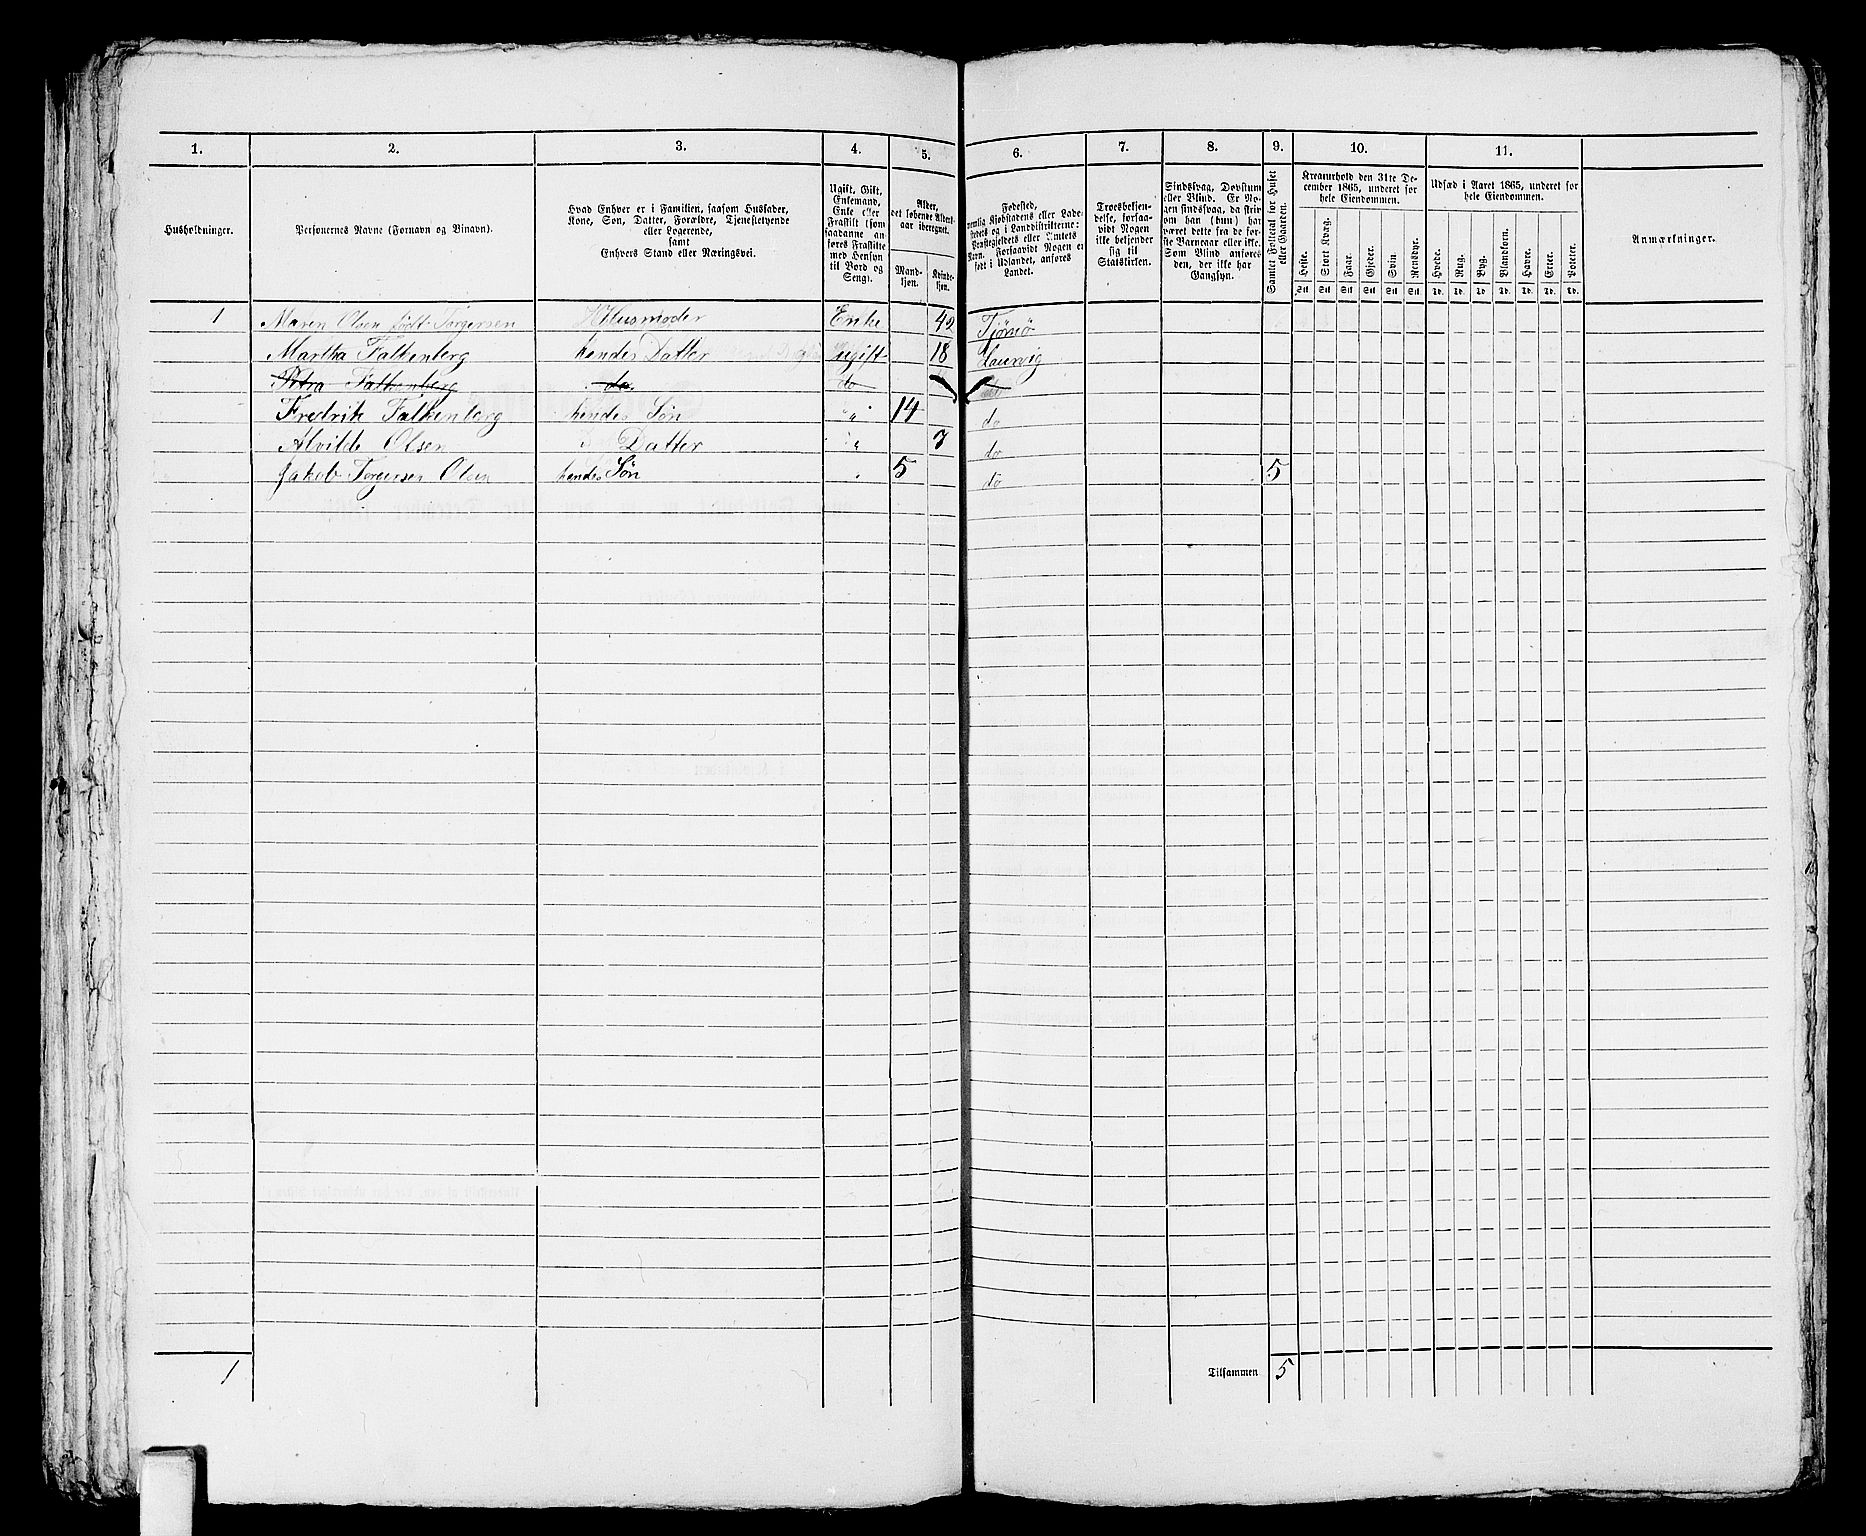 1. 2. 3. 4. 5. 6. 7. 8. 9. 10. 11.
Husholdninger.
Personernes Navne (Fornavn og Binavn).
Hvad Enhver er i Familien, saasom Husfader,
Kone, Søn, Datter, Forældre, Tjenestetyende
eller Logerende,
samt
Enhvers Stand eller Næringsvei.
Ugift, Gift,
Enkemand,
Enke eller
Fraskilt (som
saadanne an-
føres Fraskilte
med Hensyn
til Bord og
Seng).
Alder,
det løbende Alders-
aar iberegnet.
Mand-
kjøn.
Kvinde-
kjøn.
Fødested,
nemlig Kjøbstadens eller Lade-
stedets og i Landdistrikterne:
Præstegjeldets eller Amtets
Navn. Forsaavidt Nogen er
født i Udlandet, anføres
Landet.
Troesbekjen-
delse, forsaa-
vidt Nogen
ikke bekjender
sig til
Statskirken.
Sindssvag, Døvstum
eller Blind. Er No-
gen sindssvag, da skriv
om han (hun) har
været dette fra de før-
ste Barneaar eller ikke.
Som Blind anføres
den, der ikke har
Gangsyn.
Samlet Folketal for Huset
eller Gaarden.
Kreaturhold den 31te De-
cember 1865, underet for
hele Eiendommen.
Heste. Stort Kvæg. Faar. Gjeder. Svin. Rensdyr.
Stk. Stk. Stk. Stk. Stk. Stk.
Udsæd i Aaret 1865, underet for
hele Eiendommen.
Hvede. Rug. Byg. Blandkorn. Havre. Erter. Poteter.
Td. Td. Td. Td. Td. Td. Td.
Anmærkninger.
1 Maren Olsen født Torgersen Husmoder Enke 42 Tjømø
Martha Falkenberg hendes Datter ugift 18 Laurvig
Petra Falkenberg do do
Fredrik Falkenberg hendes Søn " 14 do
Alvilde Olsen Datter " 7 do
Jakob Torgersen Olsen hendes Søn " 5 do 5
1 Tilsammen 5